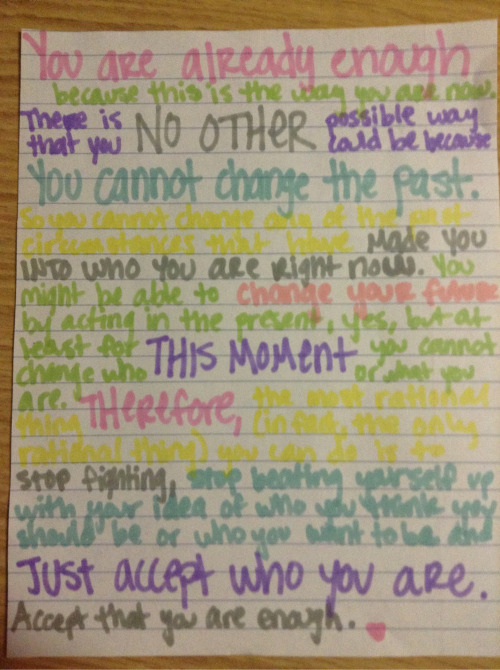 You are already enough
because this is the way you are now.
There is NO OTHER possible way
that you could be because
You cannot change the past.
So you cannot change any of the past
circumstances that have Made you
INTO who you are right now. You
might be able to change your future
by acting in the present, yes, but at
least for THIS MOMENT you cannot
change who or what you
are. THerefore, the most rational
thing (in fact, the only
rational thing) you can do is to
stop fighting, stop beating yourself up
with your idea of who you think you
should be or who you want to be and
Just accept who you are.
Accept that you are enough.